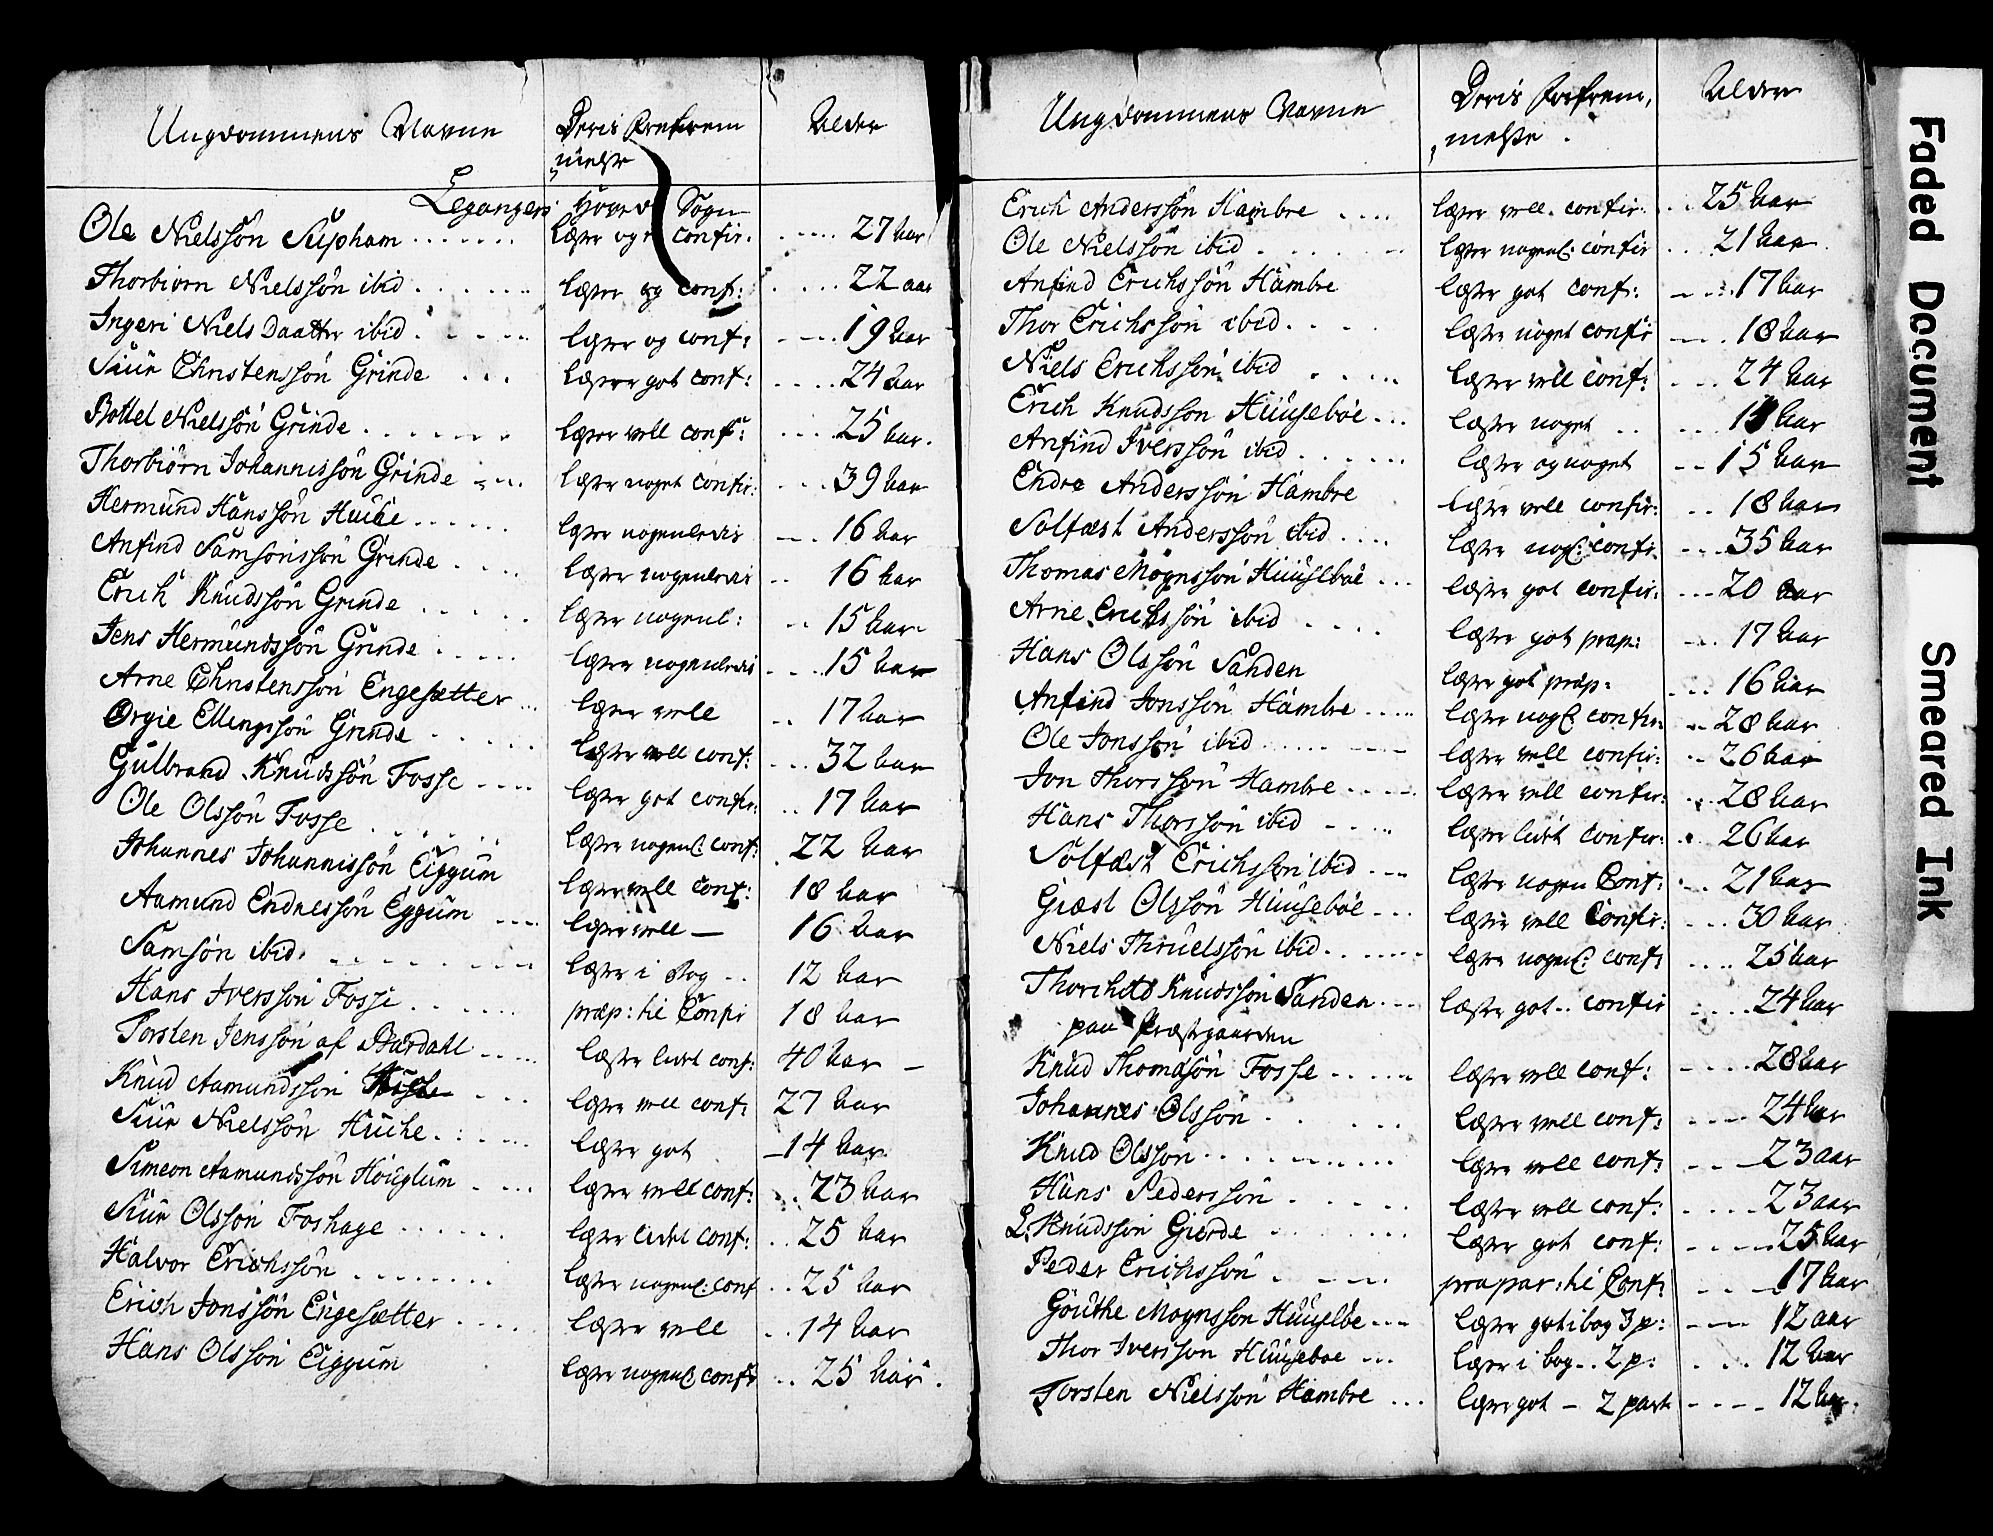 Ungdommens Navne Deris Forfrem Alder
melse
Leganger Hoved Sogn
Ole Nielssön Supham læser og confir. 27 aar
Thorbiorn Nielssön ibid læser og conf: 22 aar
Ingeri Niels Daatter ibid læser og conf: 19 aar
Siur Christenssön Grinde læser got conf: 24 aar
Bottel Nielssön Grinde læser vell conf: 25 aar.
Thorbiörn Johannissön Grinde læser noget confir: 39 aar
Hermund Hanssön Huche læser nogenledis 16 aar
Anfind Samsonssön Grinde læser nogenledis 16 aar
Erich Knudssön Grinde læser nogenl: 15 aar
Jens Hermundssön Grinde læser nogenledis 15 aar
Arne Christenssön Engesætter læser vell 17 aar
Orgie Ellingssön Grinde læser vell conf: 32 aar
Gulbrand Knudssön Fosse læser got confir: 17 aar
Ole Olssön Fosse læser nogenl: conf: 22 aar
Johannes Johannissön Eiggum læser vell conf: 18 aar
Aamund Endressön Eggum læser vell — 16 aar
Samsön ibid. læser i Bog 12 aar
Hans Iverssön Fosse præp: til Confir 18 aar
Torsten Jenssön af Bardahl læser lidet conf: 40 aar —
Knud Aamundssön læser vell conf: 27 aar
Siur Nielssön Huche læser got 14 aar
Simeon Aamundssön Höuglum læser vell conf: 23 aar
Siur Olssön Foshage læser lidet conf: 25 aar
Halvor Erichssön læser nogenl: conf 25 aar
Erich Jonssön Engesætter læser vell 14 aar
Hans Olssön Eiggum læser nogenl: confir 25 aar.
Ungdommens Navne Deris Forfrem, Alder
melse.
Erich Anderssön Hambre læser vell. confir. 25 aar
Ole Nielssön ibid læser nogenl: confir 21 aar
Anfind Erichssön Hambre læser got conf: 17 aar
Thor Erichssön ibid. læser noget confir 18 aar
Niels Erichssön ibid læser vell conf: 24 aar
Erich Knudssön Huuseböe læser noget aar
Anfind Iverssön ibid læser og noget 15 aar
Endre Anderssön Hambre læser vell confir: 18 aar
Solfæst Anderssön ibid læser nogl: confir. 35 aar
Thomas Mognssön Huuseböe læser got confir: 20 aar
Arne Erichssön ibid læser got præp: 17 aar
Hans Olssön Sanden læser got præp: 16 aar
Anfind Jonssön Hambre læser nogl: confir: 28 aar
Ole Jonssön ibid læser vell confir: 26 aar
Jon Thorssön Hambre læser vell confir: 28 aar
Hans Thorssön ibid læser lidet confir: 26 aar
Solfæst Erichssön ibid læser nogen Conf: 21 aar
Giæst Olssön Huuseböe læser vell Confir: 30 aar
Niels Thruelssön ibid. læser nogenl: conf: 25 aar
Thorchild Knudssön Sanden læser got confir 24 aar
paa Præstgaarden
Knud Thomasön Fosse læser vell conf: 28 aar
Johannes Olssön læser vell conf: 24 aar
Knud Olssön læser vell conf: 23 aar
Hans Pederssön læser vell conf: 23 aar
L. Knudssön Gierde læser got conf: 25 aar
Peder Erichssön præpar: til Conf: 17 aar
Göuthe Mognssön Huuselbe læser got i bog 3 p: 12 aar
Thor Iverssön Huuseboe læser i bog 2 p: 12 aar
Torsten Nielssön Hambre læser got — 2 part 12 aar.
Faded Document
Smeared Ink